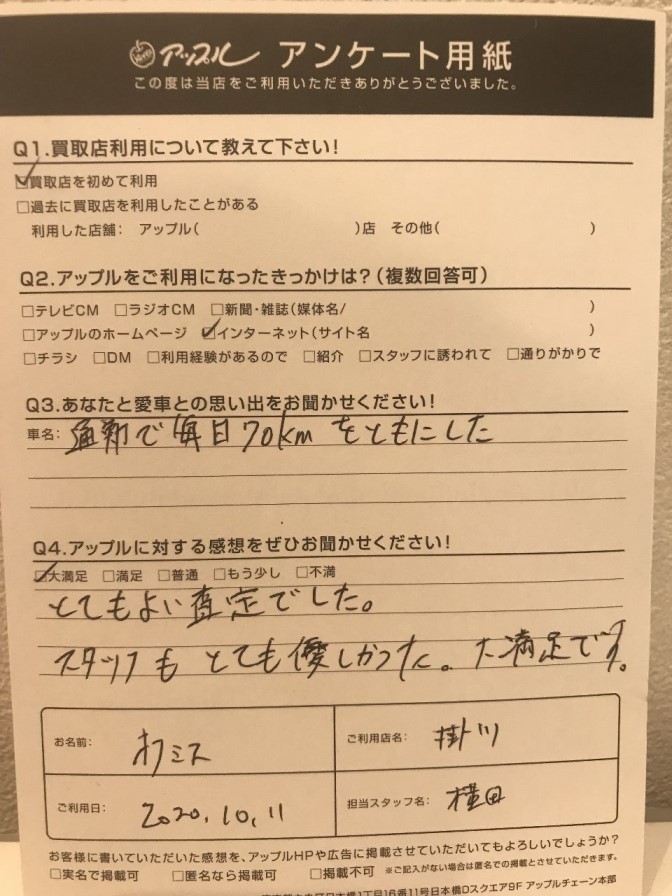 アップル アンケート用紙
この度は当店をご利用いただきありがとうございました。
Q1.買取店利用について教えて下さい!
☑買取店を初めて利用
□過去に買取店を利用したことがある
利用した店舗: アップル( )店 その他( )
Q2.アップルをご利用になったきっかけは?(複数回答可)
□テレビCM □ラジオCM □新聞・雑誌(媒体名/ )
□アップルのホームページ ☑インターネット(サイト名 )
□チラシ □DM □利用経験があるので □紹介 □スタッフに誘われて □通りがかりで
Q3.あなたと愛車との思い出をお聞かせください!
車名: 通勤で毎日70kmをともにした
Q4.アップルに対する感想をぜひお聞かせください!
☑大満足 □満足 □普通 □もう少し □不満
とてもよい査定でした。
スタッフもとても優しかった。大満足です。
お名前:
ご利用店名: 掛川
ご利用日: 2020.10.11
担当スタッフ名: 横田
お客様に書いていただいた感想を、アップルHPや広告に掲載させていただいてもよろしいでしょうか?
□実名で掲載可 □匿名なら掲載可 □掲載不可 ※ご記入がない場合は匿名での掲載とさせていただきます。
日本橋1丁目16番11号日本橋Dスクエア9F アップルチェーン本部